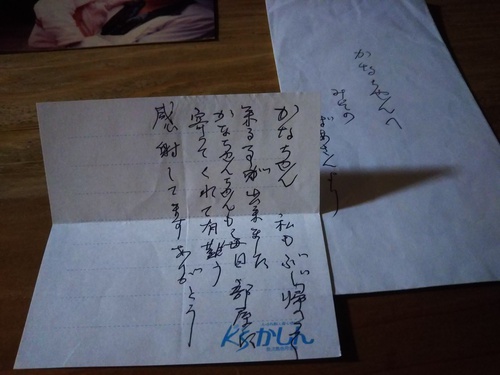 かなちゃんへ
みその
ばあさんより
かなちゃん 私もぶじ帰って
来る事が出来ました
かなちゃんも毎日部屋に
寄ってくれて有難う
感謝してますありがとう
KSかしん